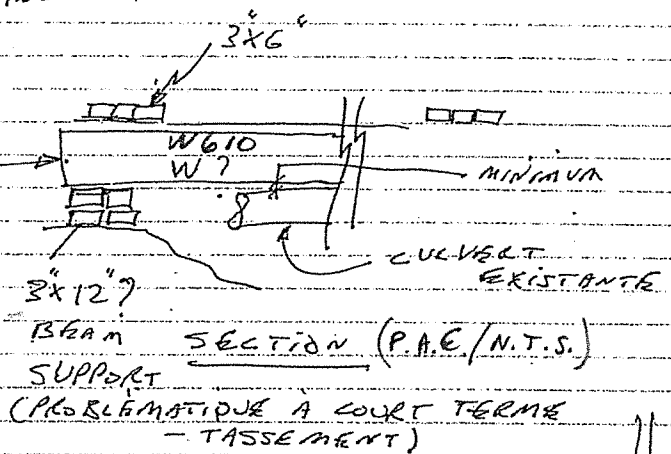 3"X6"
W610
W ?
MINIMUM
CULVERT
EXISTANTE
3"X12"?
BEAM
SUPPORT
SECTION (P.A.E./N.T.S.)
(PROBLÉMATIQUE À COURT TERME
- TASSEMENT)